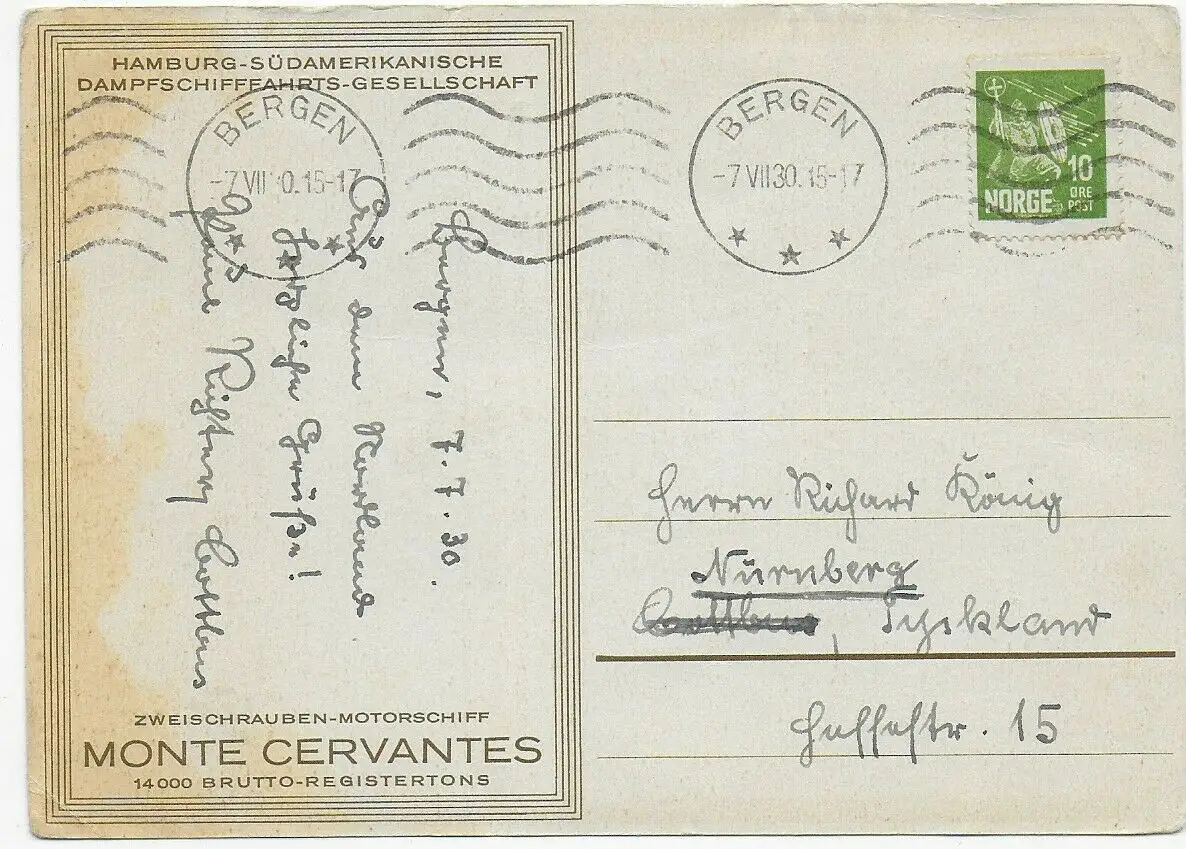 HAMBURG-SÜDAMERIKANISCHE
DAMPFSCHIFFFAHRTS-GESELLSCHAFT
BERGEN
-7 VII 30. 15-17
Bergen, 7.7.30.
Aus dem Nordland
herzliche Grüße!
Cottbus
ZWEISCHRAUBEN-MOTORSCHIFF
MONTE CERVANTES
14000 BRUTTO-REGISTERTONS
BERGEN
-7 VII 30. 15-17
10
NORGE ØRE
POST
Herrn Richard König
Nürnberg
Cottbus, Tyskland
15